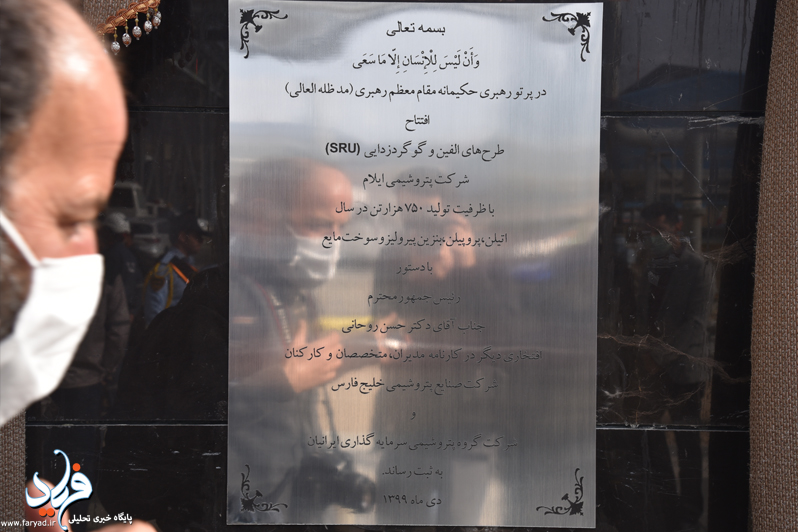 بسمه تعالی
وَأَنْ لَیْسَ لِلْإِنْسَانِ إِلَّا مَا سَعَى
در پرتو رهبری حکیمانه مقام معظم رهبری (مد ظله العالی)
افتتاح
طرح‌های الفین و گوگردزدایی (SRU)
شرکت پتروشیمی ایلام
با ظرفیت تولید ۷۵۰ هزارتن در سال
اتیلن، پروپیلن، بنزین پیرولیز و سوخت مایع
با دستور
رئیس جمهور محترم
جناب آقای دکتر حسن روحانی
افتخاری دیگر در کارنامه مدیران، متخصصان و کارکنان
شرکت صنایع پتروشیمی خلیج فارس
و
شرکت گروه پتروشیمی سرمایه گذاری ایرانیان
به ثبت رساند.
دی ماه ۱۳۹۹
فریاد
پایگاه خبری تحلیلی
www.faryad.ir